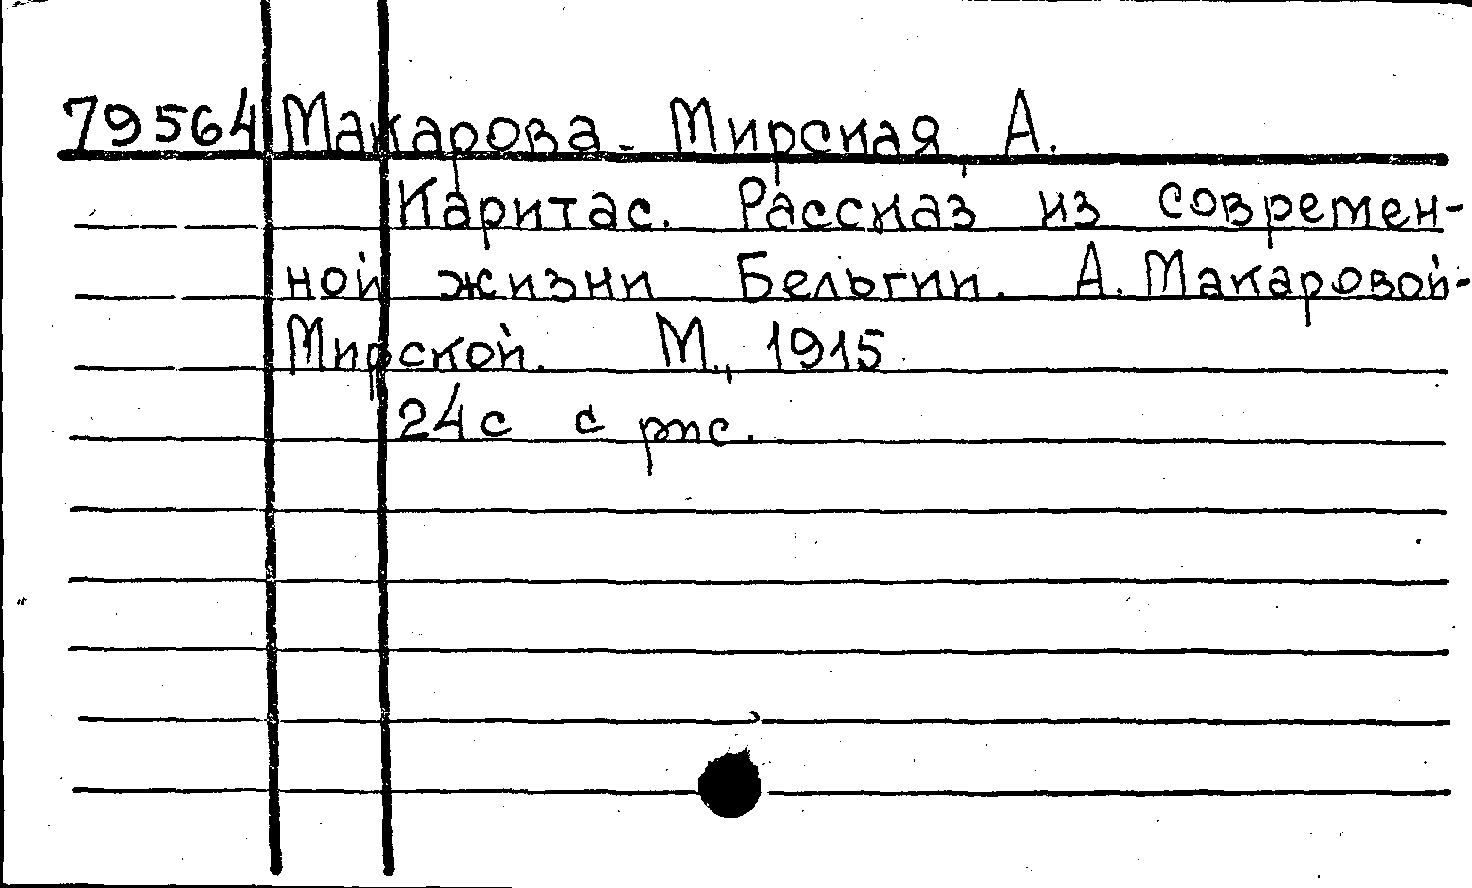 79564 Макарова-Мирская, А.
Каритас. Рассказ из современ-
ной жизни Бельгии. А. Макаровой-
Мирской. М., 1915
24с с рис.